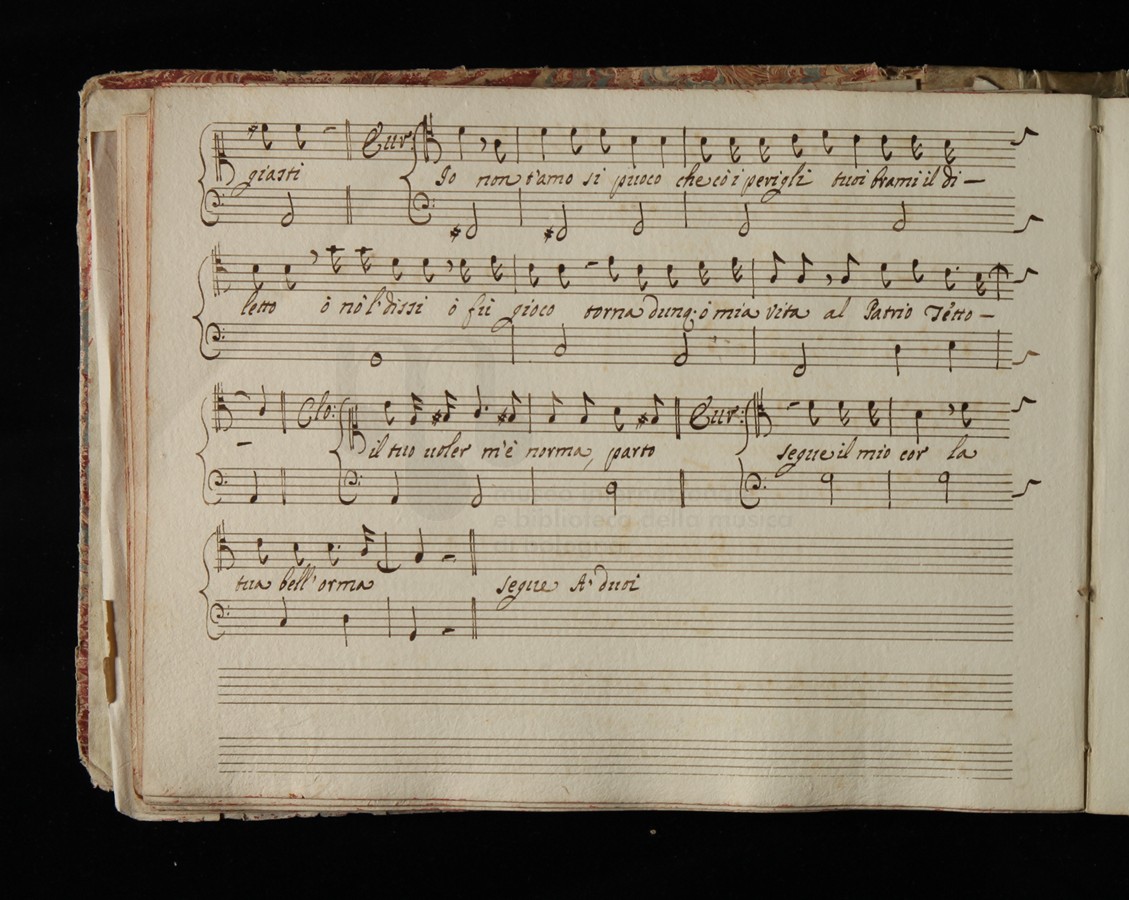 giasti Eur: Io non t'amo si puoco che cò i perigli tuoi brami il di-
letto ò nò l'dissi ò fù gioco torna dunq: ò mia vita al Patrio Tetto-
- Clo: il tuo uoler m'è norma, parto Eur: segue il mio cor la
tua bell'orma segue A' duoi
e biblioteca della musica